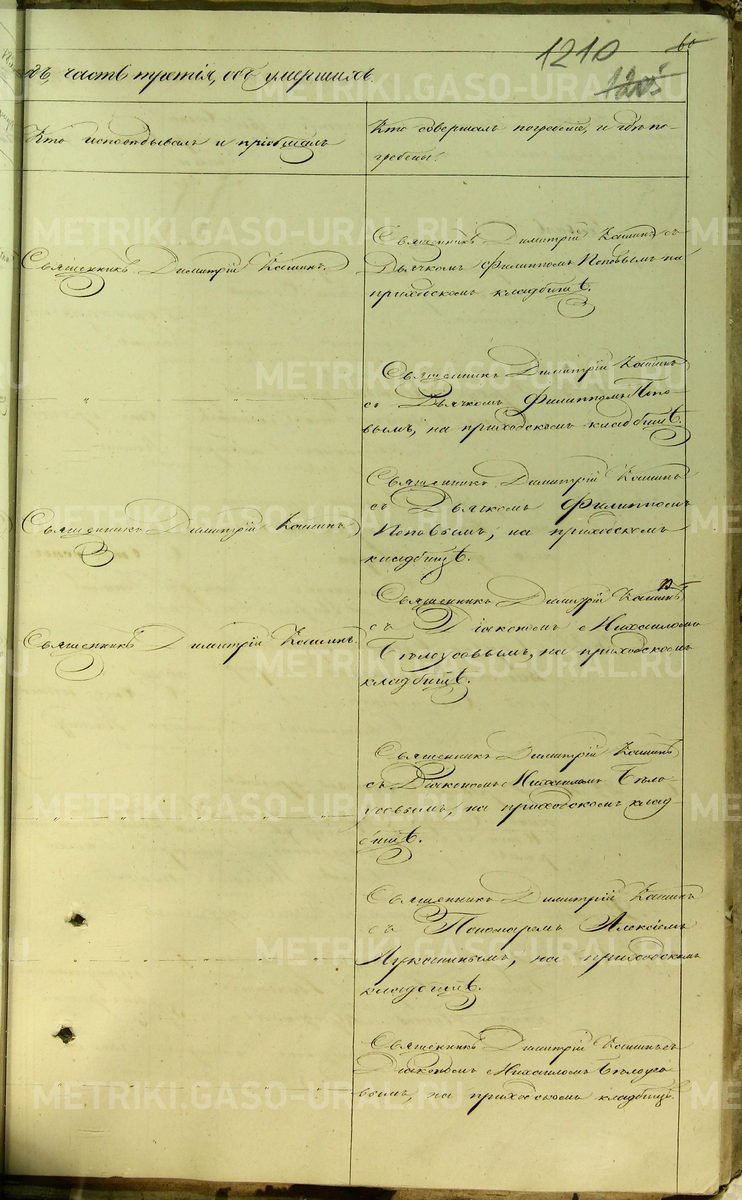 1210
60
1205
дъ, часть третія, объ умершихъ.
Кто исповѣдывалъ и пріобщалъ
Кто совершалъ погребеніе, и гдѣ по-
гребены.
Священникъ Димитрій Кашинъ.
Священникъ Димитрій Кашинъ съ
Дьячкомъ Филиппомъ Поповымъ на
приходскомъ кладбищѣ.
Священникъ Димитрій Кашинъ
съ Дьячкомъ Филиппомъ Попо-
вымъ, на приходскомъ кладбищѣ.
Священникъ Димитрій Кашинъ
Священникъ Димитрій Кашинъ
съ Дьячкомъ Филиппомъ
Поповымъ, на приходскомъ
кладбищѣ.
Священникъ Димитрій Кашинъ.
Священникъ Димитрій Кашинъ
съ Діакономъ Михаиломъ
Бѣлоусовымъ, на приходскомъ
кладбищѣ.
Священникъ Димитрій Кашинъ
съ Діакономъ Михаиломъ Бѣло-
усовымъ, на приходскомъ клад-
бищѣ.
Священникъ Димитрій Кашинъ
съ Пономаремъ Алексіемъ
Лукашинымъ, на приходскомъ
кладбищѣ.
Священникъ Димитрій Кашинъ съ
Діакономъ Михаиломъ Бѣлоусо-
вымъ, на приходскомъ кладбищѣ.
METRIKI.GASO-URAL.RU